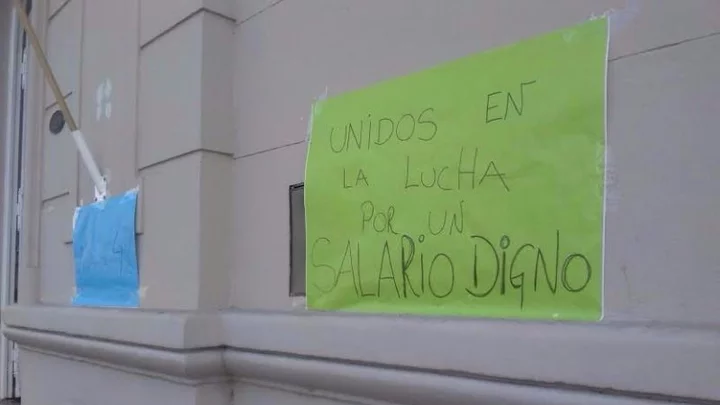 UNIDOS EN
LA LUCHA
POR UN
SALARIO DIGNO